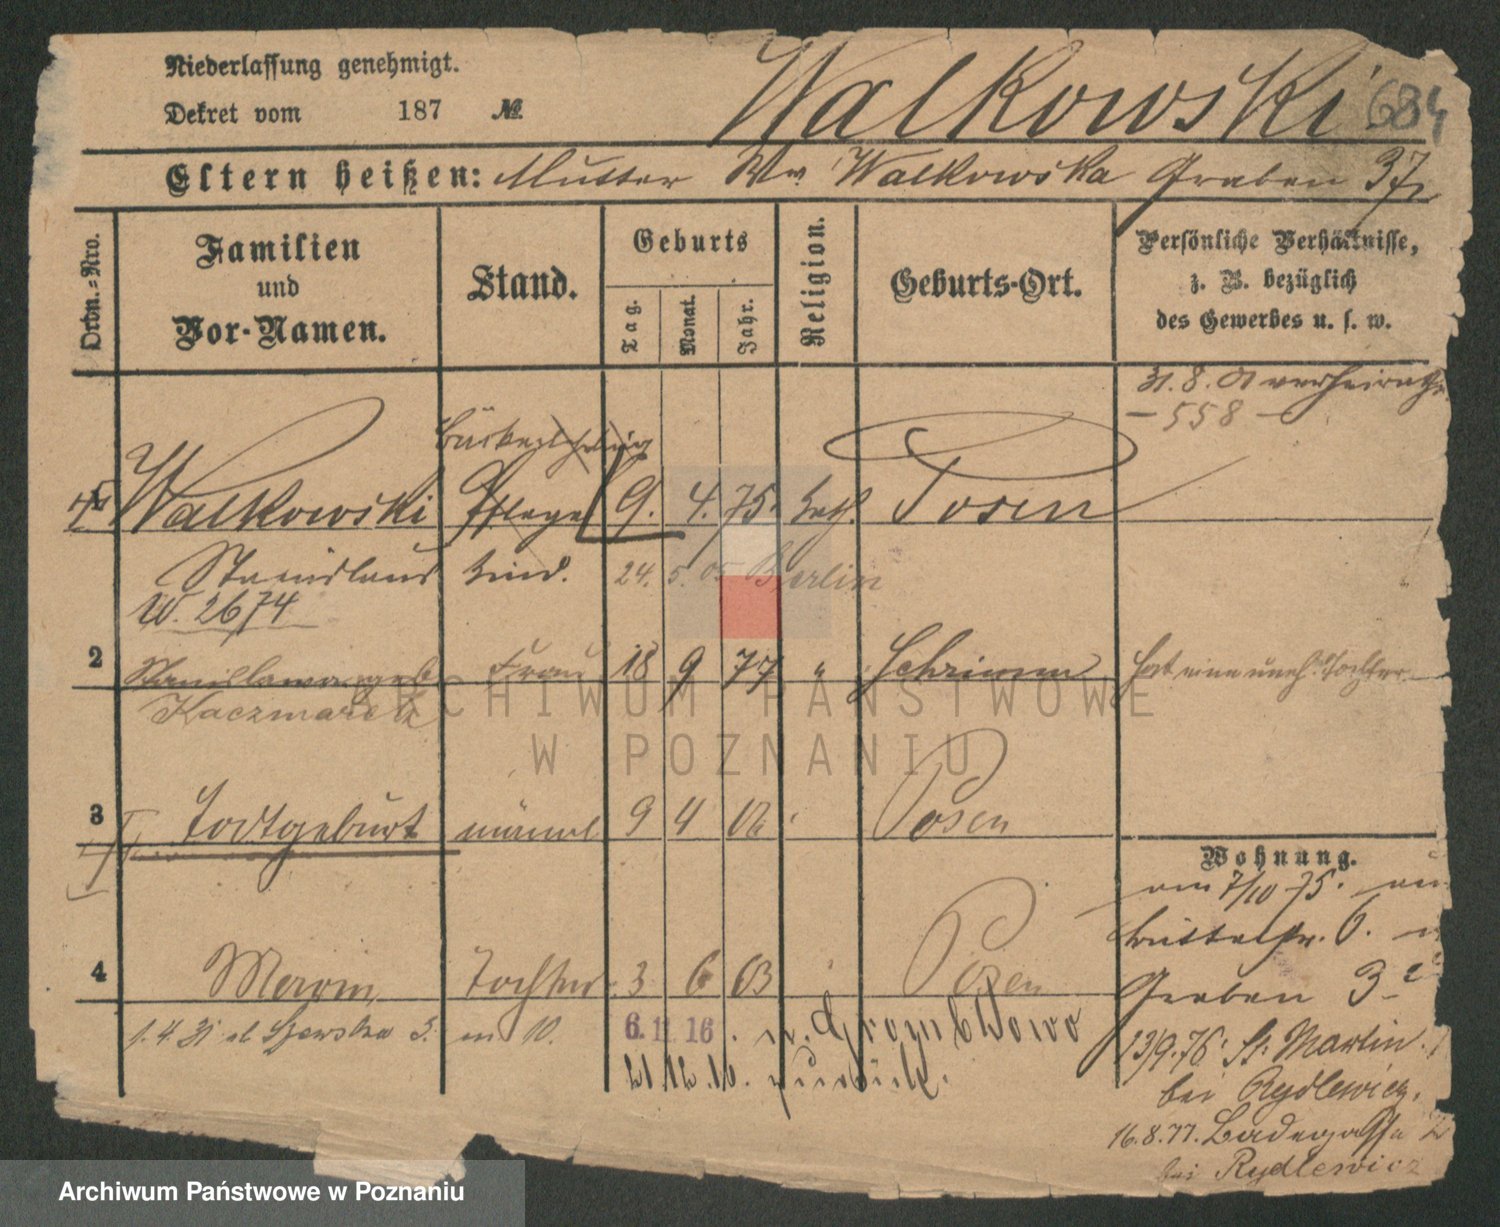 Niederlassung genehmigt.
Dekret vom 187 №
Walkowski 684
Eltern heißen: Mutter Ww Walkowska Graben 37
Ordn.=Nro.
Familien und Vor-Namen.
Stand.
Geburts
Tag.
Monat.
Jahr.
Religion.
Geburts-Ort.
Persönliche Verhältnisse,
z. B. bezüglich
des Gewerbes u. s. w.
31. 8. 01 verheirathet
– 558 –
Bäckerlehrling
Walkowski Pflege 9. 4. 75. kath. Posen
Stanislaus Kind. 24. 5. 05 Berlin
W. 2674
2 Stanislawa geb. Frau 18 9 77 " Schrimm hat eine uneh. Tochter
Kaczmarek
ARCHIWUM PAŃSTWOWE
W POZNANIU
3 Todtgeburt männl 9 4 02 Posen
Wohnung.
am 7/10 75.
6.
4 Tochter 3 6 03 Posen
Graben 3
1. 4. 31 ul Szewska 5. m 10. 6. 11. 16. n. Grombkowo
13/9. 76. St. Martin
21. 12. 16. zurück.
bei Rydlewicz.
16. 8. 77. Badegasse
bei Rydlewicz
Archiwum Państwowe w Poznaniu